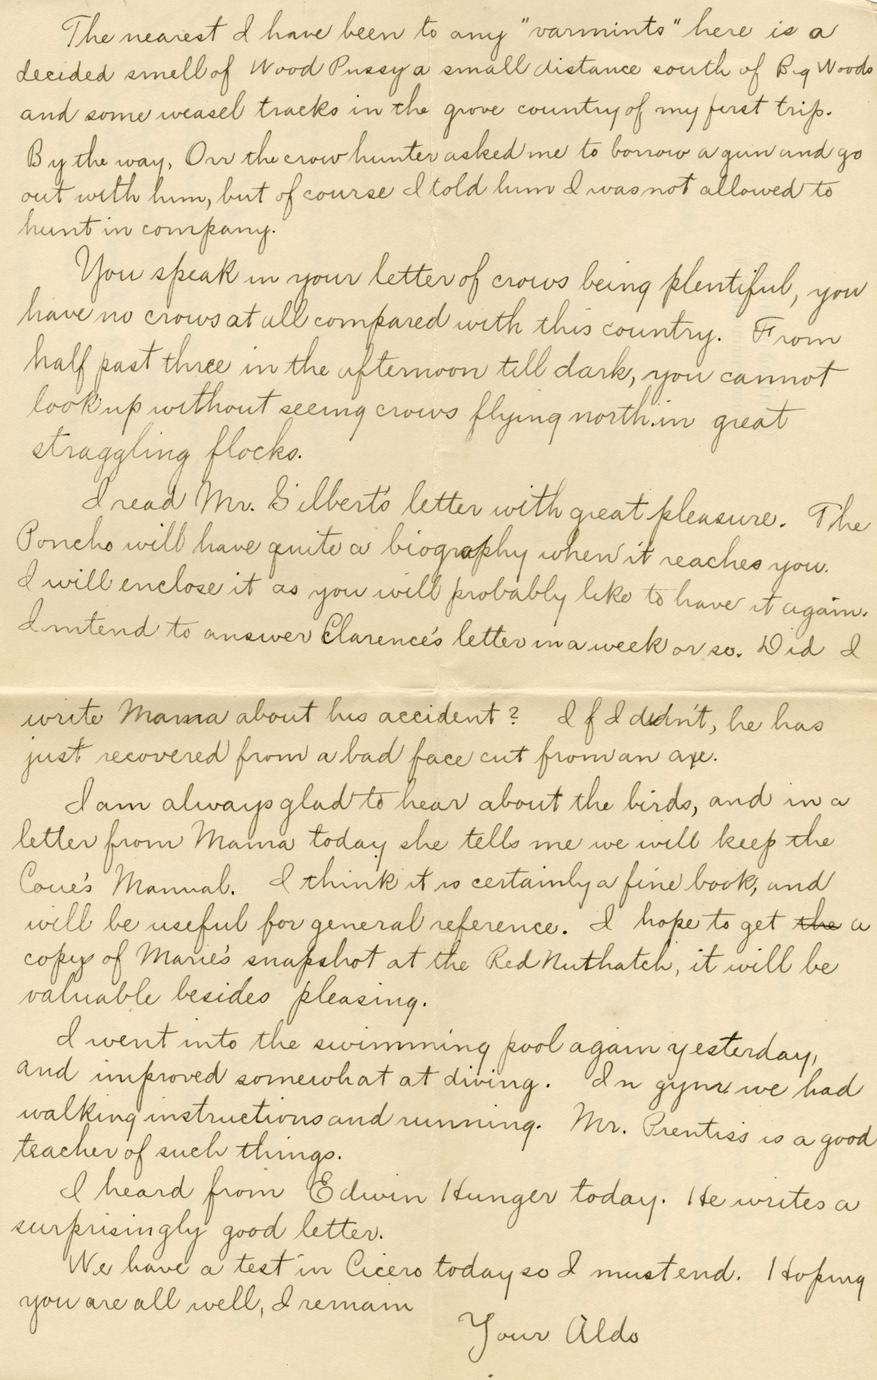 The nearest I have been to any "varmints" here is a
decided smell of Wood Pussy a small distance south of Big Woods
and some weasel tracks in the grove country of my first trip.
By the way, Orr the crow hunter asked me to borrow a gun and go
out with him, but of course I told him I was not allowed to
hunt in company.
You speak in your letter of crows being plentiful, you
have no crows at all compared with this country. From
half past three in the afternoon till dark, you cannot
look up without seeing crows flying north in great
straggling flocks.
I read Mr. Gilbert's letter with great pleasure. The
Poncho will have quite a biography when it reaches you.
I will enclose it as you will probably like to have it again.
I intend to answer Clarence's letter in a week or so. Did I
write Mama about his accident? If I didn't, he has
just recovered from a bad face cut from an axe.
I am always glad to hear about the birds, and in a
letter from Mama today she tells me we will keep the
Coue's Manual. I think it is certainly a fine book, and
will be useful for general reference. I hope to get the a
copy of Marie's snapshot at the Red Nuthatch, it will be
valuable besides pleasing.
I went into the swimming pool again yesterday,
and improved somewhat at diving. In gym we had
walking instructions and running. Mr. Prentiss is a good
teacher of such things.
I heard from Edwin Hunger today. He writes a
surprisingly good letter.
We have a test in Cicero today so I must end. Hoping
you are all well, I remain
Your Aldo